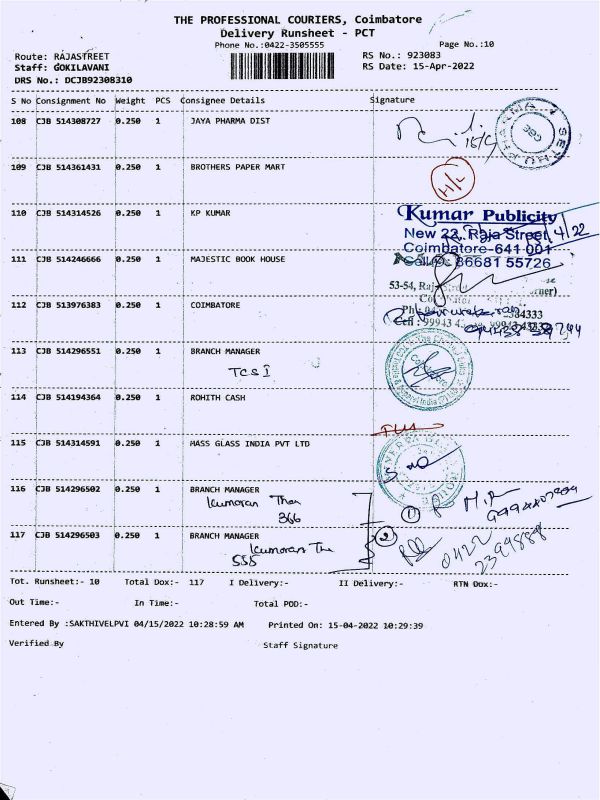 THE PROFESSIONAL COURIERS, Coimbatore
Delivery Runsheet - PCT
Phone No.:0422-3505555
Page No.:10
Route: RAJASTREET
RS No.: 923083
Staff: GOKILAVANI
RS Date: 15-Apr-2022
DRS No.: DCJB92308310
S No Consignment No Weight PCS Consignee Details Signature
108 CJB 514308727 0.250 1 JAYA PHARMA DIST
109 CJB 514361431 0.250 1 BROTHERS PAPER MART
110 CJB 514314526 0.250 1 KP KUMAR
Kumar Publicity
New 22, Raja Street,
Coimbatore-641 001
86681 55726
111 CJB 514246666 0.250 1 MAJESTIC BOOK HOUSE
53-54, Raj
112 CJB 513976383 0.250 1 COIMBATORE
113 CJB 514296551 0.250 1 BRANCH MANAGER
TCSI
114 CJB 514194364 0.250 1 ROHITH CASH
115 CJB 514314591 0.250 1 MASS GLASS INDIA PVT LTD
116 CJB 514296502 0.250 1 BRANCH MANAGER
366
1
117 CJB 514296503 0.250 1 BRANCH MANAGER
555
2
0422
Tot. Runsheet:- 10 Total Dox:- 117 I Delivery:- II Delivery:- RTN Dox:-
Out Time:- In Time:- Total POD:-
Entered By :SAKTHIVELPVI 04/15/2022 10:28:59 AM Printed On: 15-04-2022 10:29:39
Verified By Staff Signature